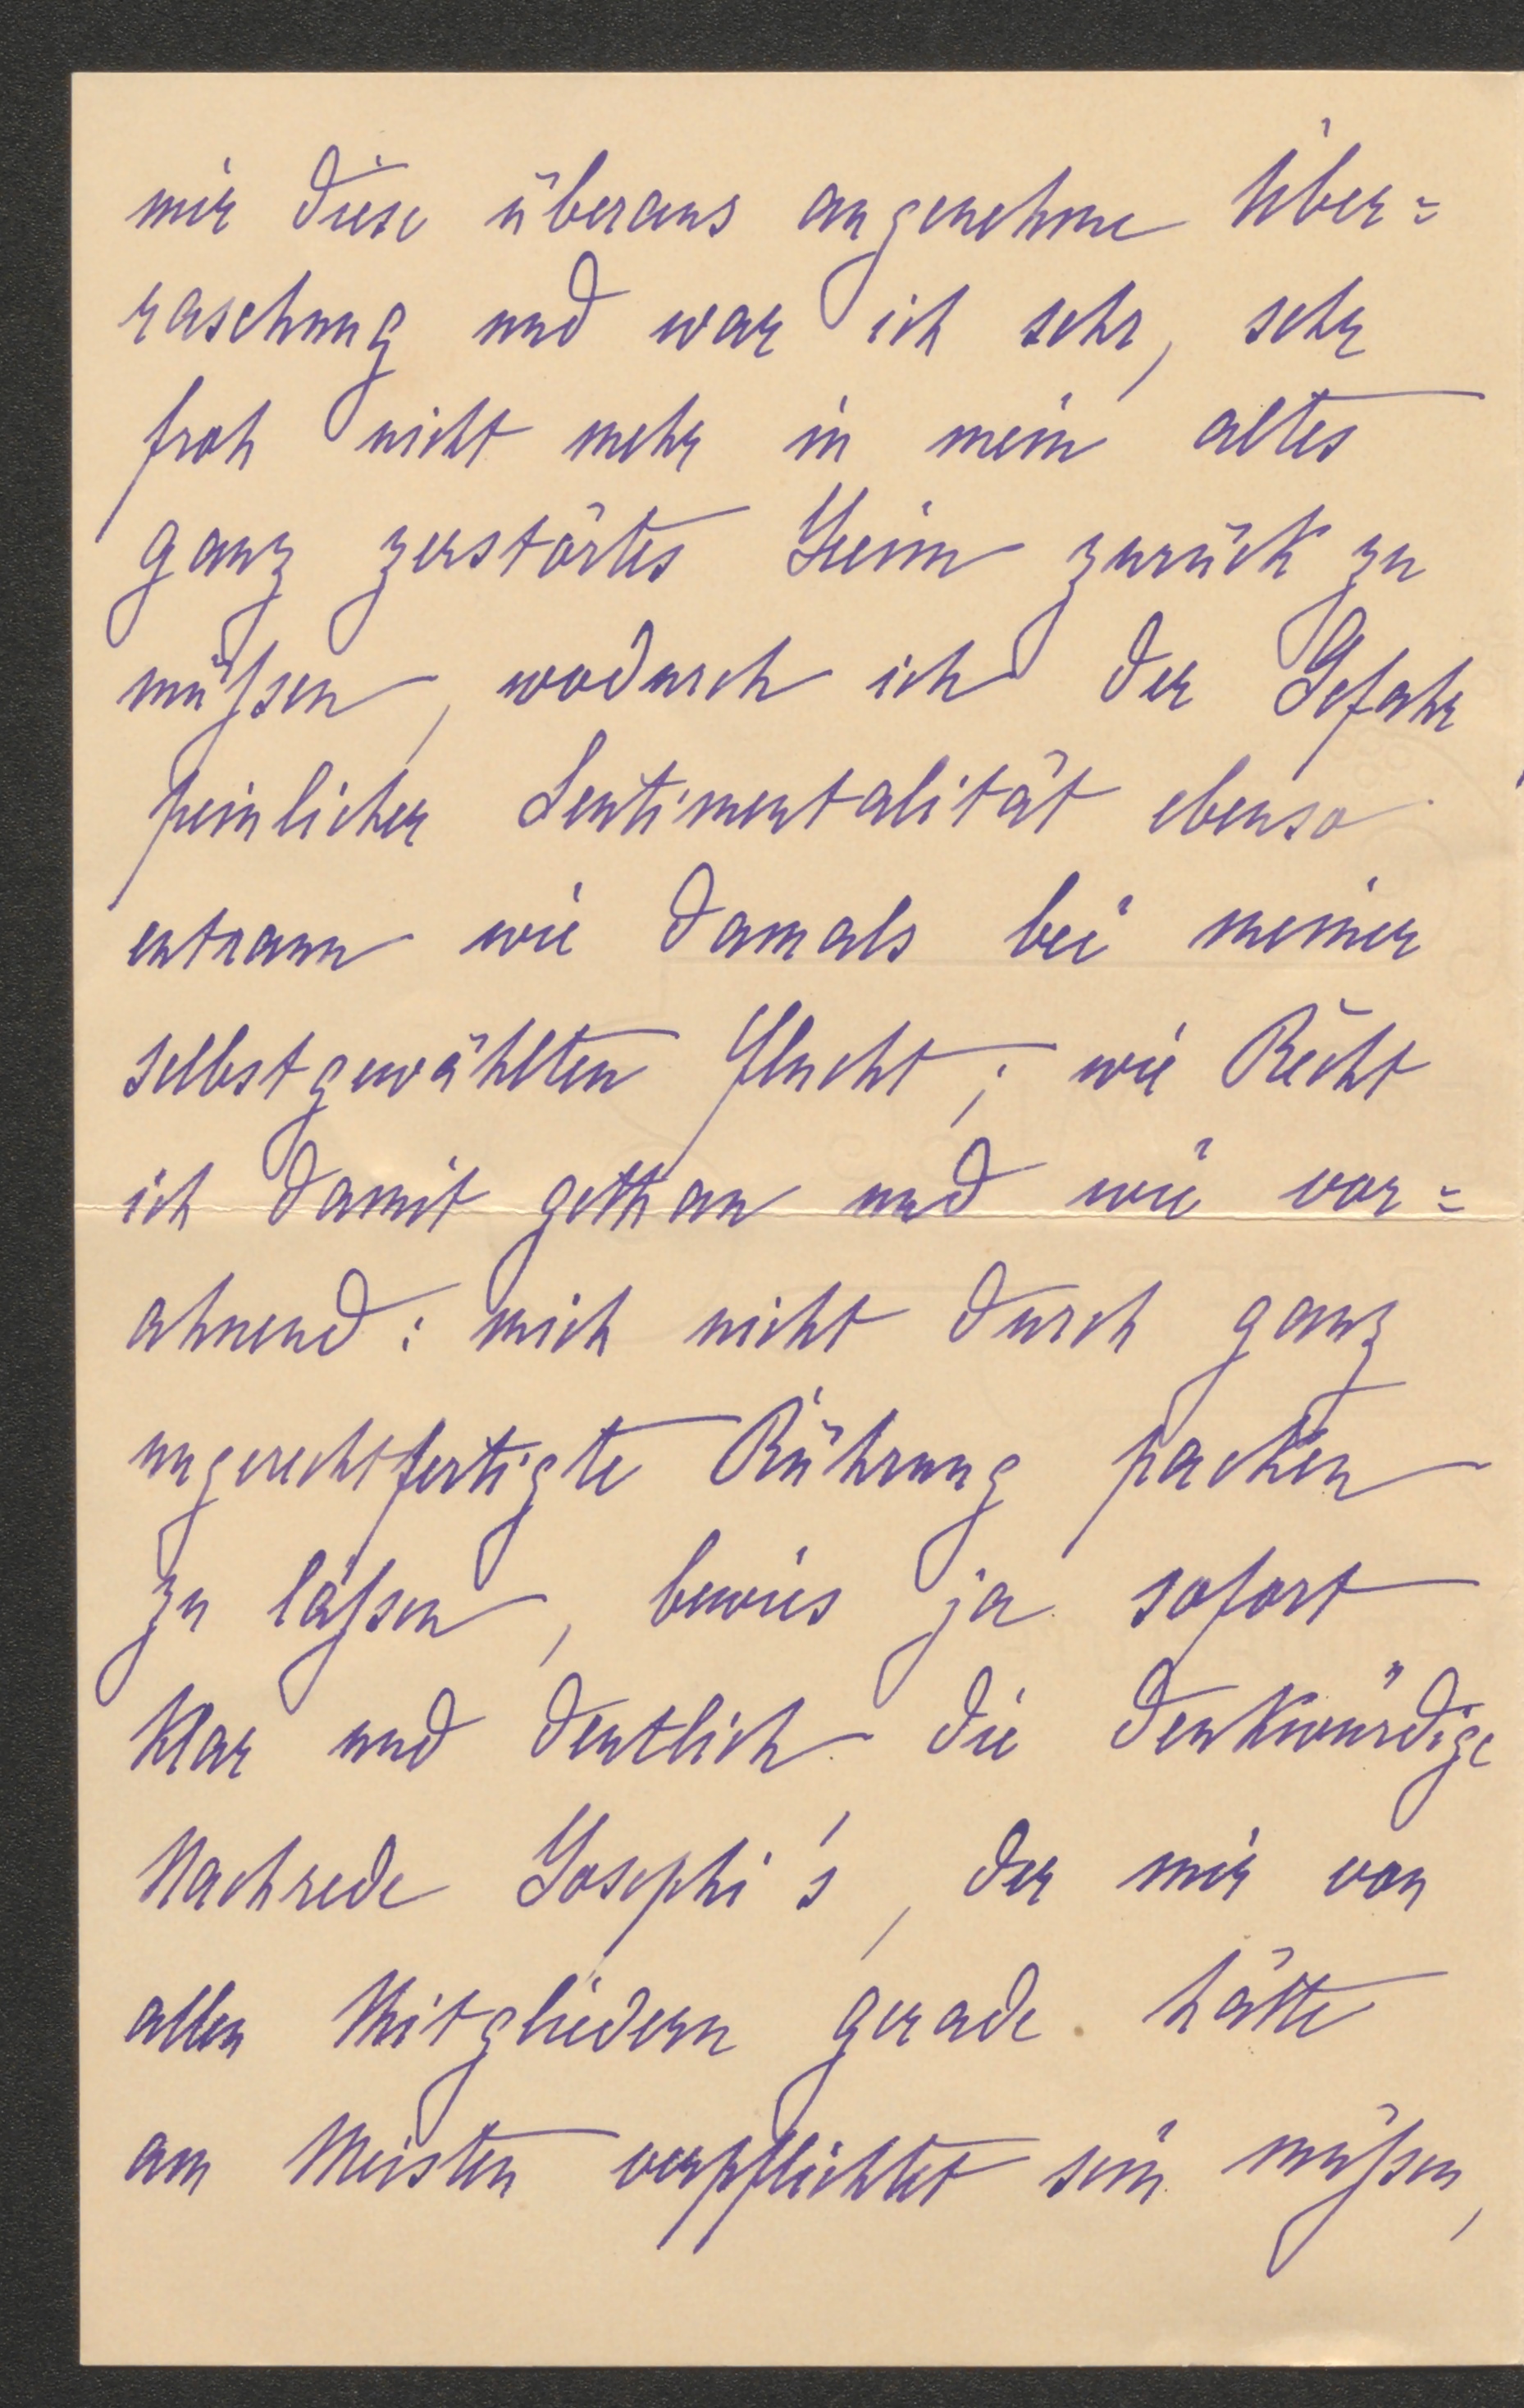 mir diese überaus angenehme Über=
raschung und war ich sehr, sehr
froh nicht mehr in mein altes
ganz zerstörtes Heim zurück zu
müßsen, wodurch ich der Gefahr
peinlicher Sentimentalität ebenso
entrann wie damals bei meiner
selbstgewählten Flucht; wie Recht
ich damit gethan und wie vor=
ahnend: mich nicht durch ganz
ungerechtfertigte Rührung packen
zu laßsen, bewies ja sofort
klar und deutlich die denkwürdige
Nachrede Josephi's, der mir von
allen Mitgliedern gerade hätte
am Meisten verpflichtet sein müßsen,